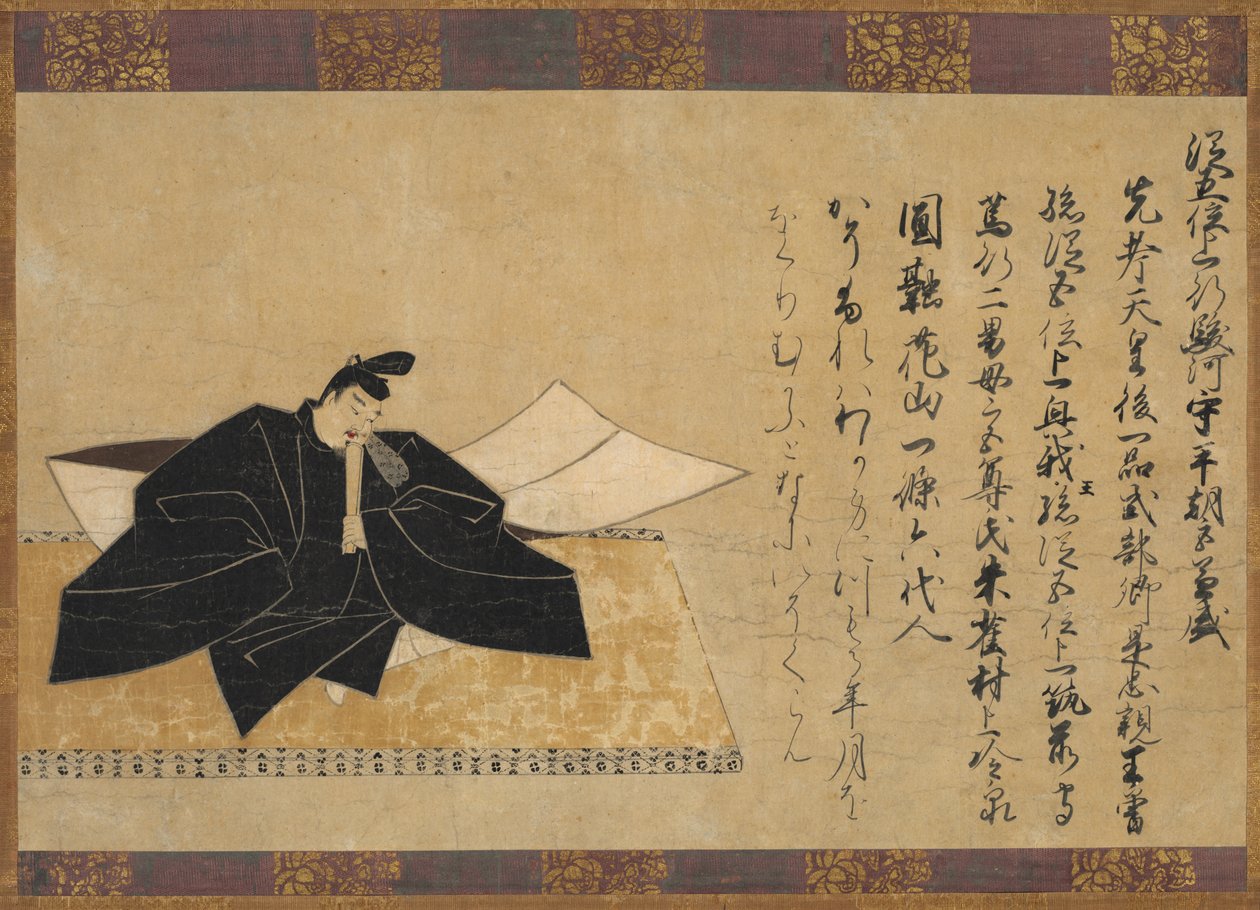 従五位上行駿河守平朝臣兼盛
光孝天皇後一品式部卿是忠親王曽
孫従五位上興我王孫従五位上筑前守
篤行二男母 朱雀村上冷泉
圓融花山一條六代人
かそふれはわか身につもる年月を
をくりむかふとなにいそくらん